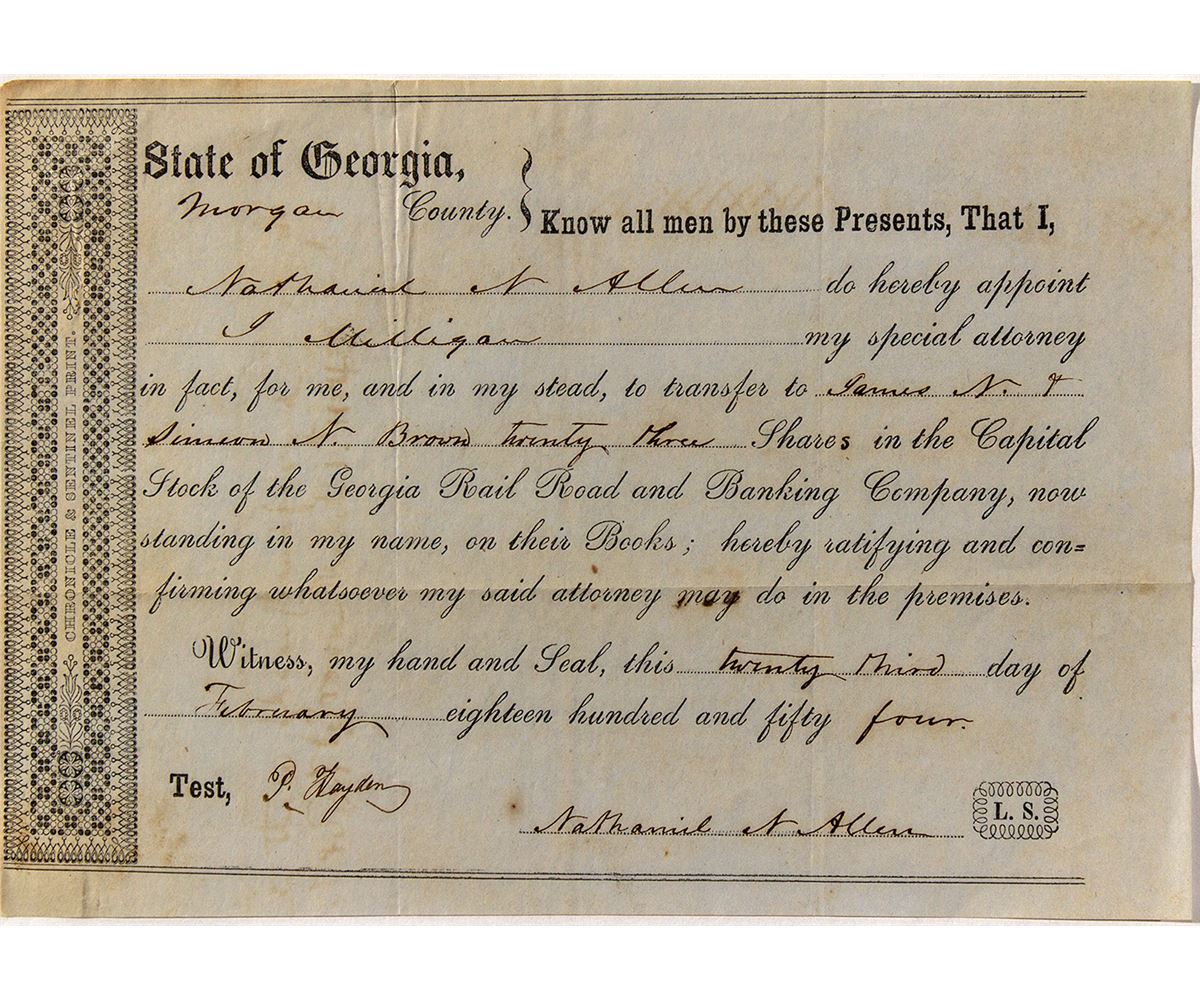 State of Georgia,
Morgan County.
Know all men by these Presents, That I,
Nathaniel N Allen do hereby appoint
J Milligan my special attorney
in fact, for me, and in my stead, to transfer to James N. &
Simeon N. Brown twenty three Shares in the Capital
Stock of the Georgia Rail Road and Banking Company, now
standing in my name, on their Books; hereby ratifying and con=
firming whatsoever my said attorney may do in the premises.
Witness, my hand and Seal, this twenty third day of
February eighteen hundred and fifty four.
Test, P. Hayden
Nathaniel N Allen L. S.
CHRONICLE & SENTINEL PRINT.